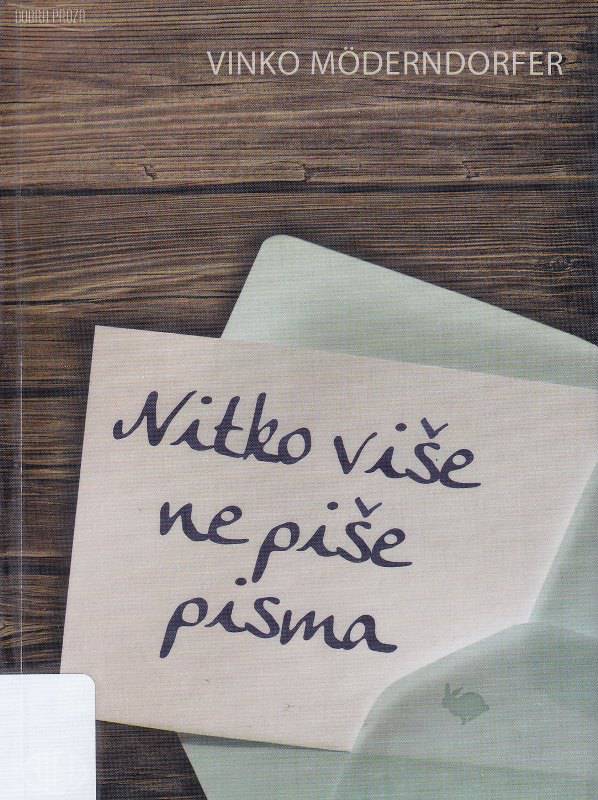 DOBRA PROZA
VINKO MÖDERNDORFER
Nitko više
ne piše
pisma